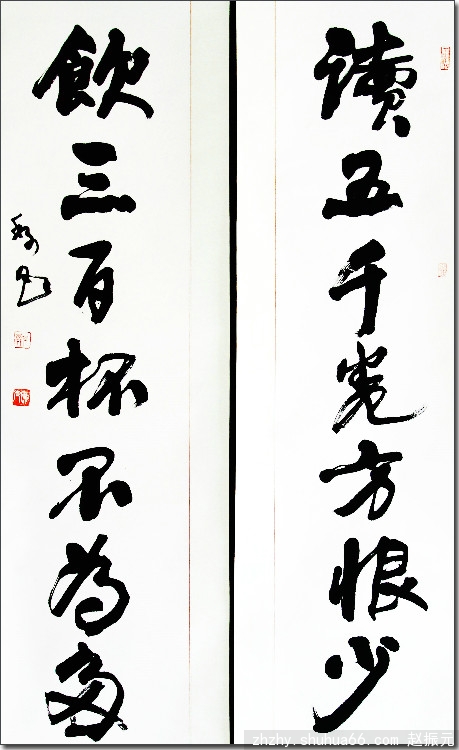 讀五千卷方恨少
飲三百杯不為多
zhzhy.shuhua66.com 赵振元